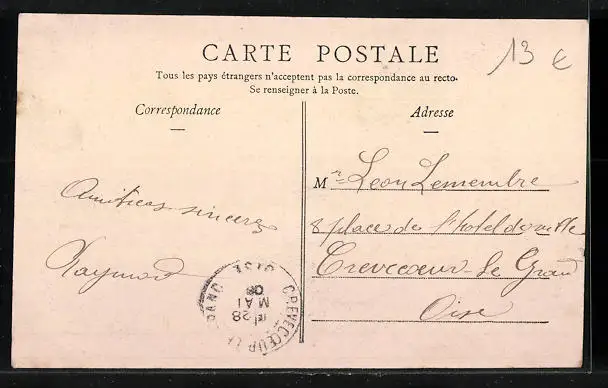 CARTE POSTALE
Tous les pays étrangers n'acceptent pas la correspondance au recto.
Se renseigner à la Poste.
13 €
Correspondance
Adresse
Amitiées sincères
Raymond
Mr Léon Lemembre
8 place de l'hotel de ville
Crevecoeur-le Grand
Oise
CREVECŒUR-LE GRAND
OISE
28
MAI
08